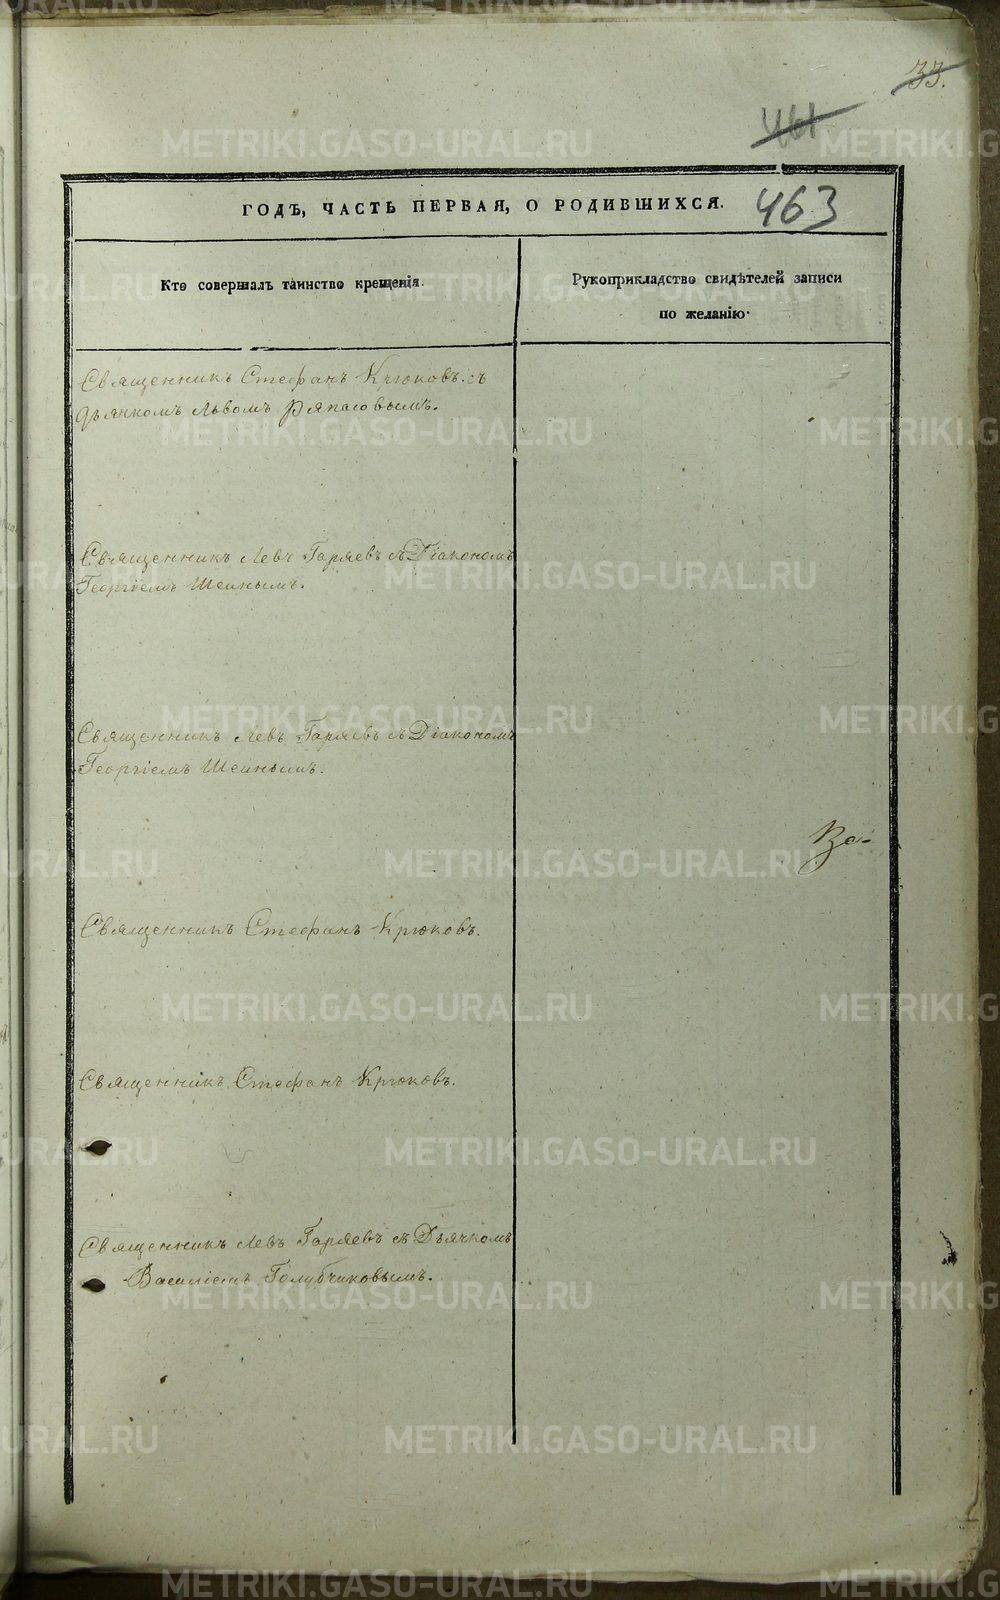 33.
461
463
ГОДЪ, ЧАСТЬ ПЕРВАЯ, О РОДИВШИХСЯ.
Кто совершалъ таинство крещенія.
Рукоприкладство свидѣтелей записи
по желанію.
Священникъ Стефанъ Крюковъ. съ
дьячкомъ Львомъ Ряпасовымъ.
Священникъ Левъ Гаряевъ съ Діакономъ
Георгіемъ Шеинымъ.
Священникъ Левъ Гаряевъ съ Діакономъ
Георгіемъ Шеинымъ.
Священникъ Стефанъ Крюковъ.
Священникъ Стефанъ Крюковъ.
Священникъ Левъ Гаряевъ съ Дьячкомъ
Василіемъ Голубчиковымъ.
METRIKI.GASO-URAL.RU